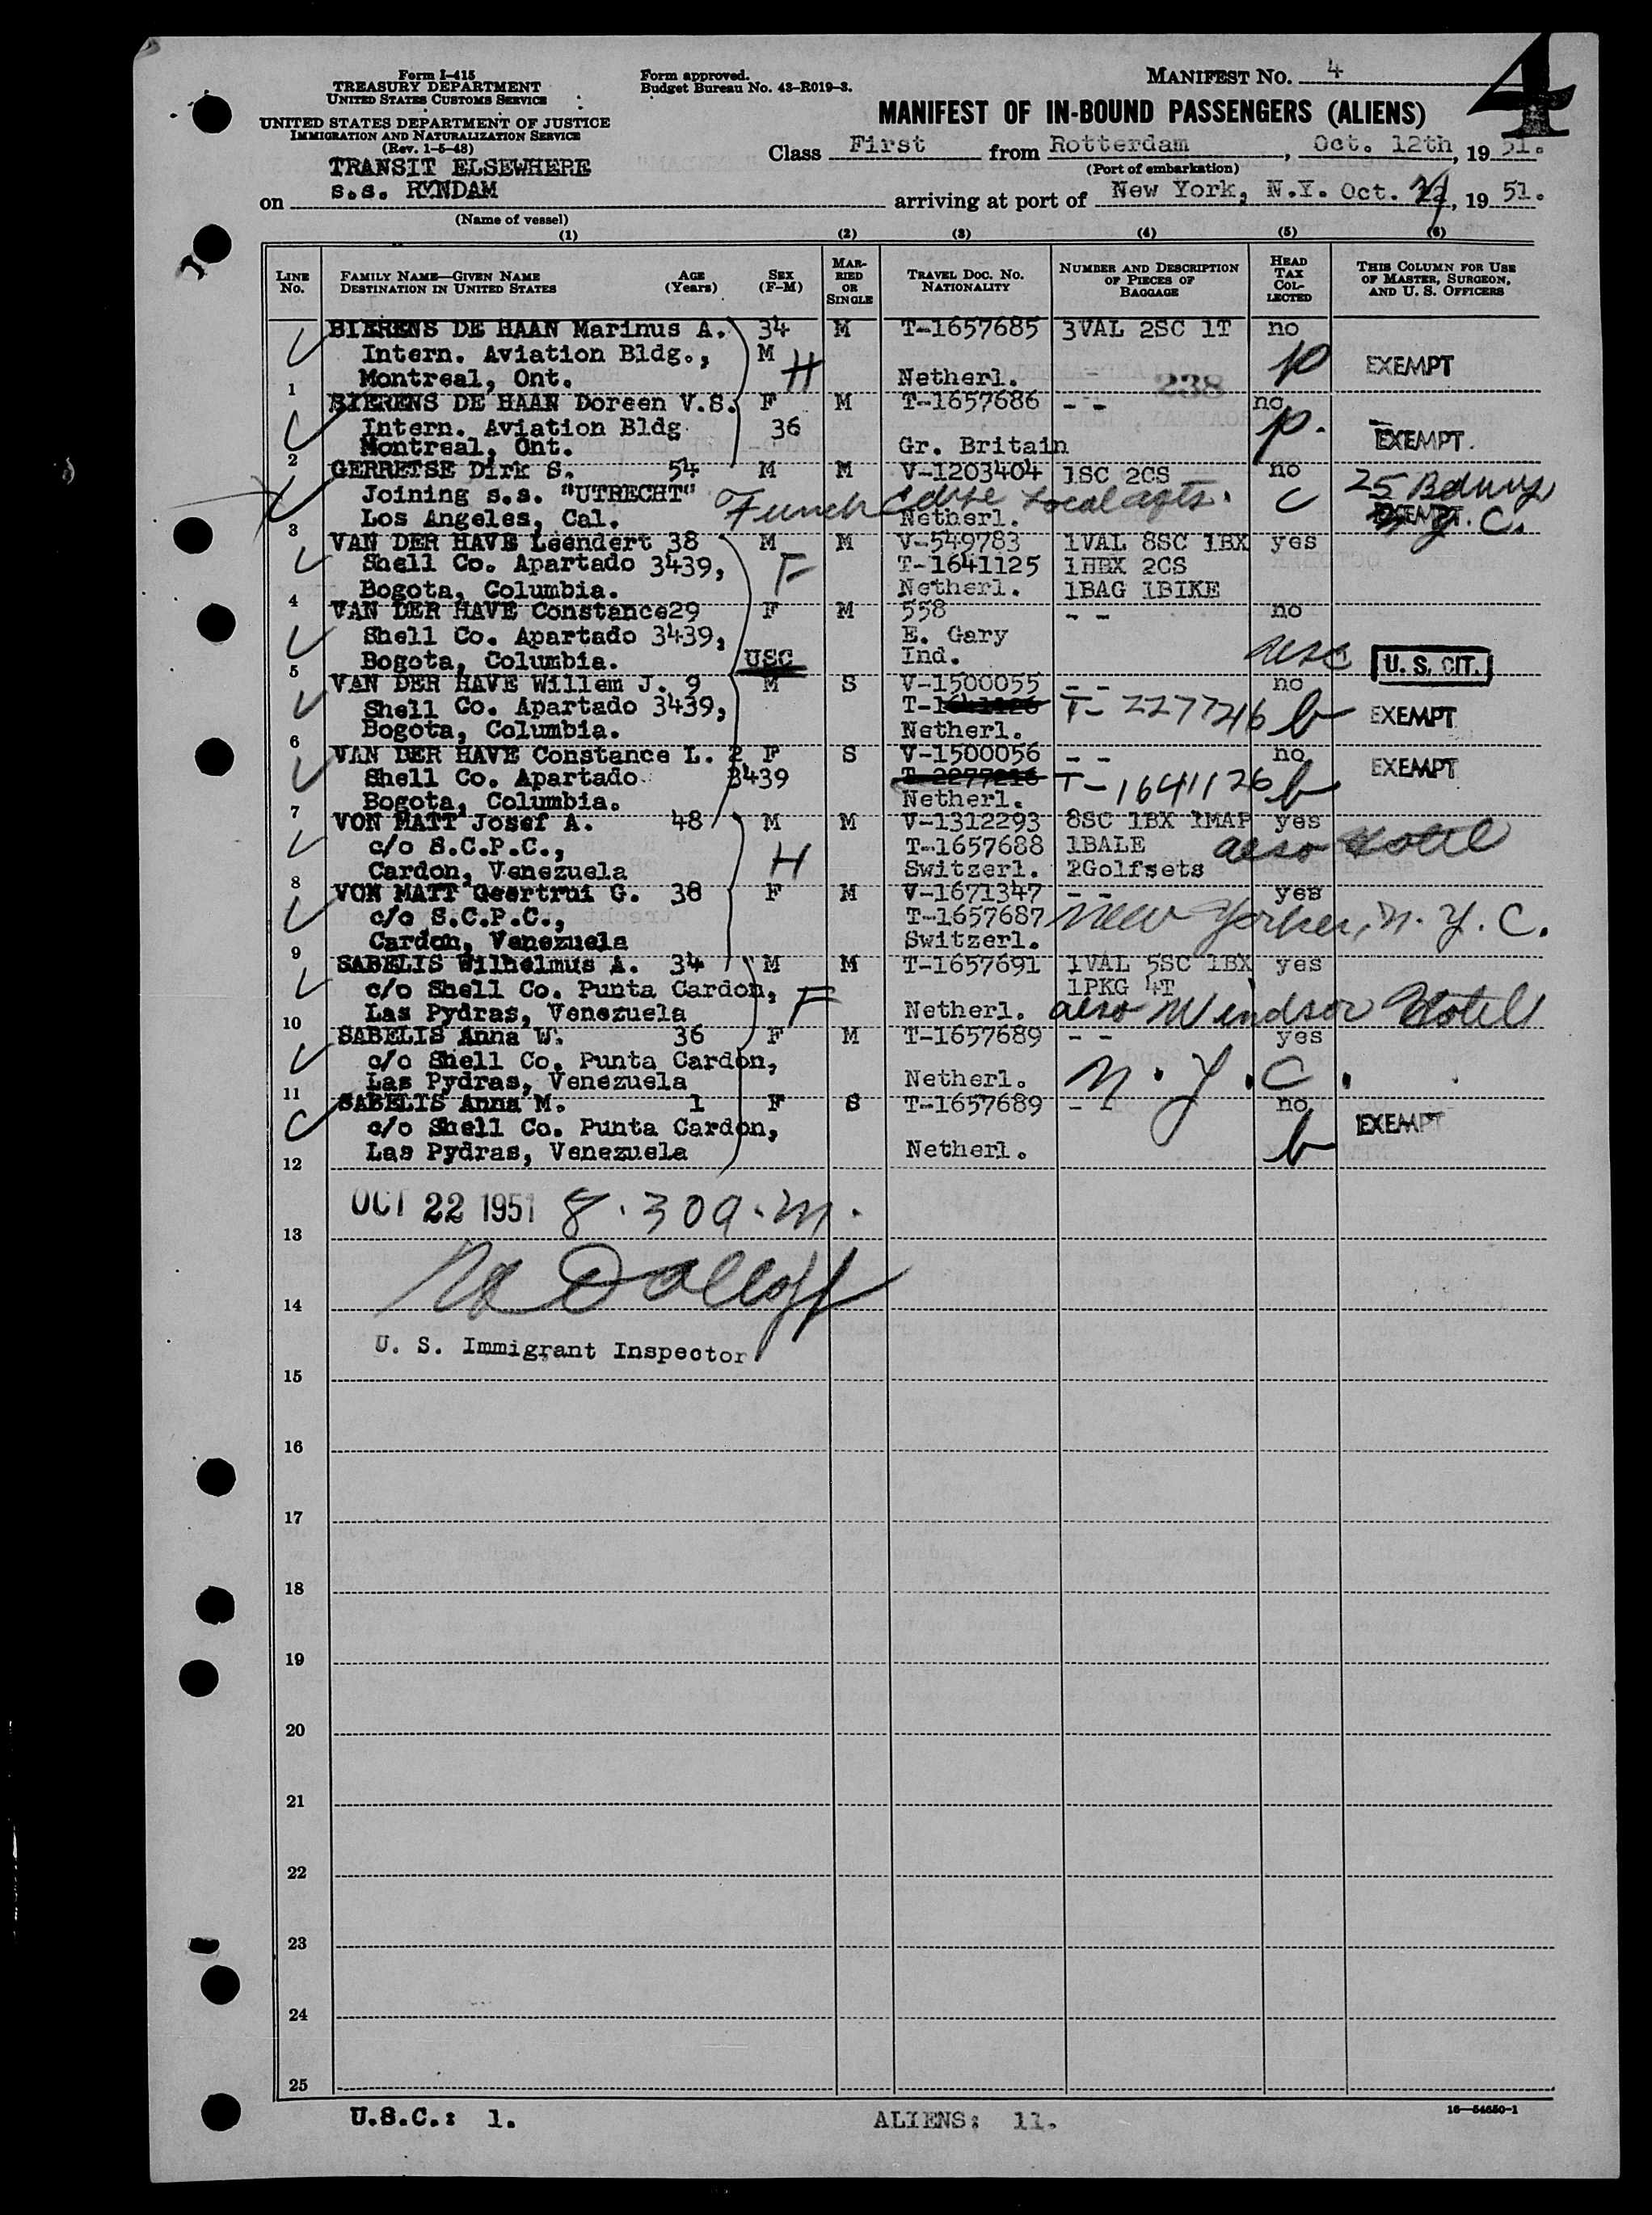 Form I-415
TREASURY DEPARTMENT
UNITED STATES CUSTOMS SERVICE
UNITED STATES DEPARTMENT OF JUSTICE
IMMIGRATION AND NATURALIZATION SERVICE
(Rev. 1-5-48)
Form approved.
Budget Bureau No. 43-R019-3.
MANIFEST No. 4
4
MANIFEST OF IN-BOUND PASSENGERS (ALIENS)
Class First from Rotterdam, Oct. 12th, 19 51.
(Port of embarkation)
TRANSIT ELSEWHERE
on s.s. RYNDAM arriving at port of New York, N.Y. Oct. , 19 51.
(Name of vessel)
(1) (2) (3) (4) (5) (6)
LINE No. FAMILY NAME—GIVEN NAME DESTINATION IN UNITED STATES AGE (Years) SEX (F-M) MARRIED OR SINGLE TRAVEL DOC. NO. NATIONALITY NUMBER AND DESCRIPTION OF PIECES OF BAGGAGE HEAD TAX COLLECTED THIS COLUMN FOR USE OF MASTER, SURGEON, AND U. S. OFFICERS
BIERENS DE HAAN Marinus A. 34 M T-1657685 3VAL 2SC 1T no
Intern. Aviation Bldg., M H p EXEMPT
1 Montreal, Ont. Netherl. 238
BIERENS DE HAAN Doreen V.S. F M T-1657686 - - no
Intern. Aviation Bldg 36 p. EXEMPT.
2 Montreal, Ont. Gr. Britain
GERRETSE Dirk S. 54 M M V-1203404 1SC 2CS no
Joining s.s. "UTRECHT" Funch Edye Local agts. C 25 Bdway
3 Los Angeles, Cal. Netherl. EXEMPT N.Y.C.
VAN DER HAVE Leendert 38 M M V-549783 1VAL 8SC 1BX yes
Shell Co. Apartado 3439, F T-1641125 1HBX 2CS
4 Bogota, Columbia. Netherl. 1BAG 1BIKE
VAN DER HAVE Constance 29 F M 558 - - no
Shell Co. Apartado 3439, E. Gary
5 Bogota, Columbia. USC Ind. usc U. S. CIT.
VAN DER HAVE Willem J. 9 M S V-1500055 - - no
Shell Co. Apartado 3439, T-1641126 T-2277216 b EXEMPT
6 Bogota, Columbia. Netherl.
VAN DER HAVE Constance L. 2 F S V-1500056 - - no
Shell Co. Apartado 3439 T-2277216 T-1641126 b EXEMPT
7 Bogota, Columbia. Netherl.
VON MATT Josef A. 48 M M V-1312293 8SC 1BX 1MAP yes
c/o S.C.P.C., H T-1657688 1BALE also Hotel
8 Cardon, Venezuela Switzerl. 2Golfsets
VON MATT Geertrui G. 38 F M V-1671347 - - yes
c/o S.C.P.C., T-1657687 New Yorker, N.Y.C.
9 Cardon, Venezuela Switzerl.
SABELIS Wilhelmus A. 34 M M T-1657691 1VAL 5SC 1BX yes
c/o Shell Co. Punta Cardon, F 1PKG 4T
10 Las Pydras, Venezuela Netherl. also Windsor Hotel
SABELIS Anna W. 36 F M T-1657689 - - yes
c/o Shell Co. Punta Cardon,
11 Las Pydras, Venezuela Netherl. N.Y.C.
SABELIS Anna M. 1 F S T-1657689 - - no
c/o Shell Co. Punta Cardon, b EXEMPT
12 Las Pydras, Venezuela Netherl.
OCT 22 1951 8.30 a.m.
13
14
U. S. Immigrant Inspector
15
16
17
18
19
20
21
22
23
24
25
U.S.C.: 1. ALIENS: 11.
16—54650-1